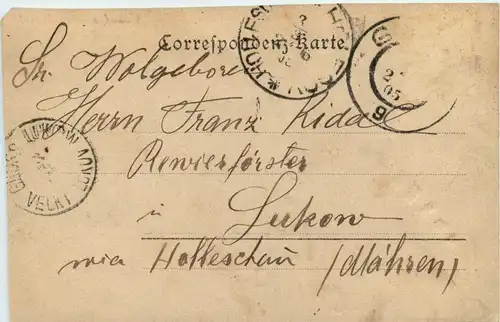 Correspondenz-Karte.
Sr. Wolgeboren
Herrn Franz Riddl
Rewierförster
in
Lukow
wia Holleschau (Mähren)